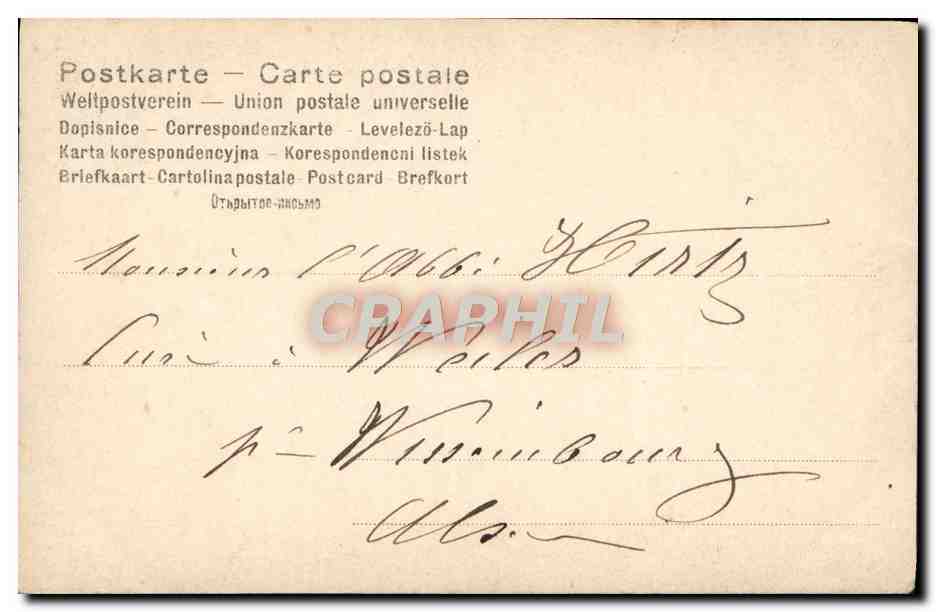 Postkarte – Carte postale
Weltpostverein — Union postale universelle
Dopisnice – Correspondenzkarte - Levelező-Lap
Karta korespondencyjna – Korespondencni listek
Briefkaart-Cartolina postale-Postcard-Brefkort
Открытое-письмо
Monsieur l'Abbé Hirtz
CPARHIL
Curé à Weiler
pr Wissembourg
Als.